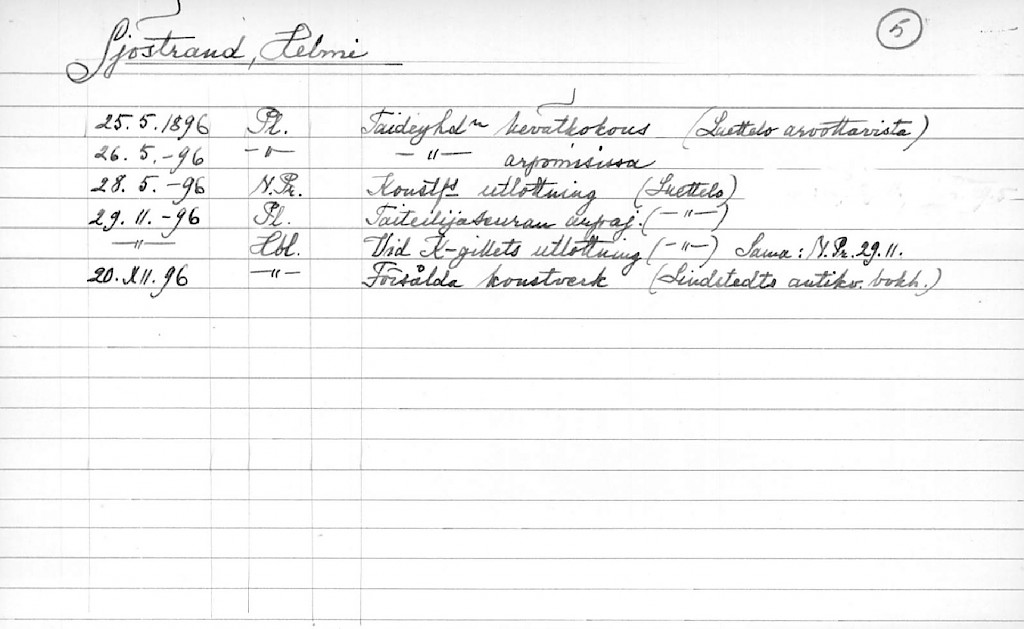 Sjöstrand, Helmi 5
25.5.1896 Pl. Taideyhd:n kevätkokous (Luettelo arvottavista)
26.5.-96 -"- -"- arpomisissa
28.5.-96 N.Pr. Konstfs utlottning (Luettelo)
29.11.-96 Pl. Taiteilijaseuran arpaj. (-"-)
-"- Hbl. Vid K-gillets utlottning (-"-) Sama: N.Pr. 29.11.
20.XII.96 -"- Försålda konstverk (Lindstedts antikv. bokh.)